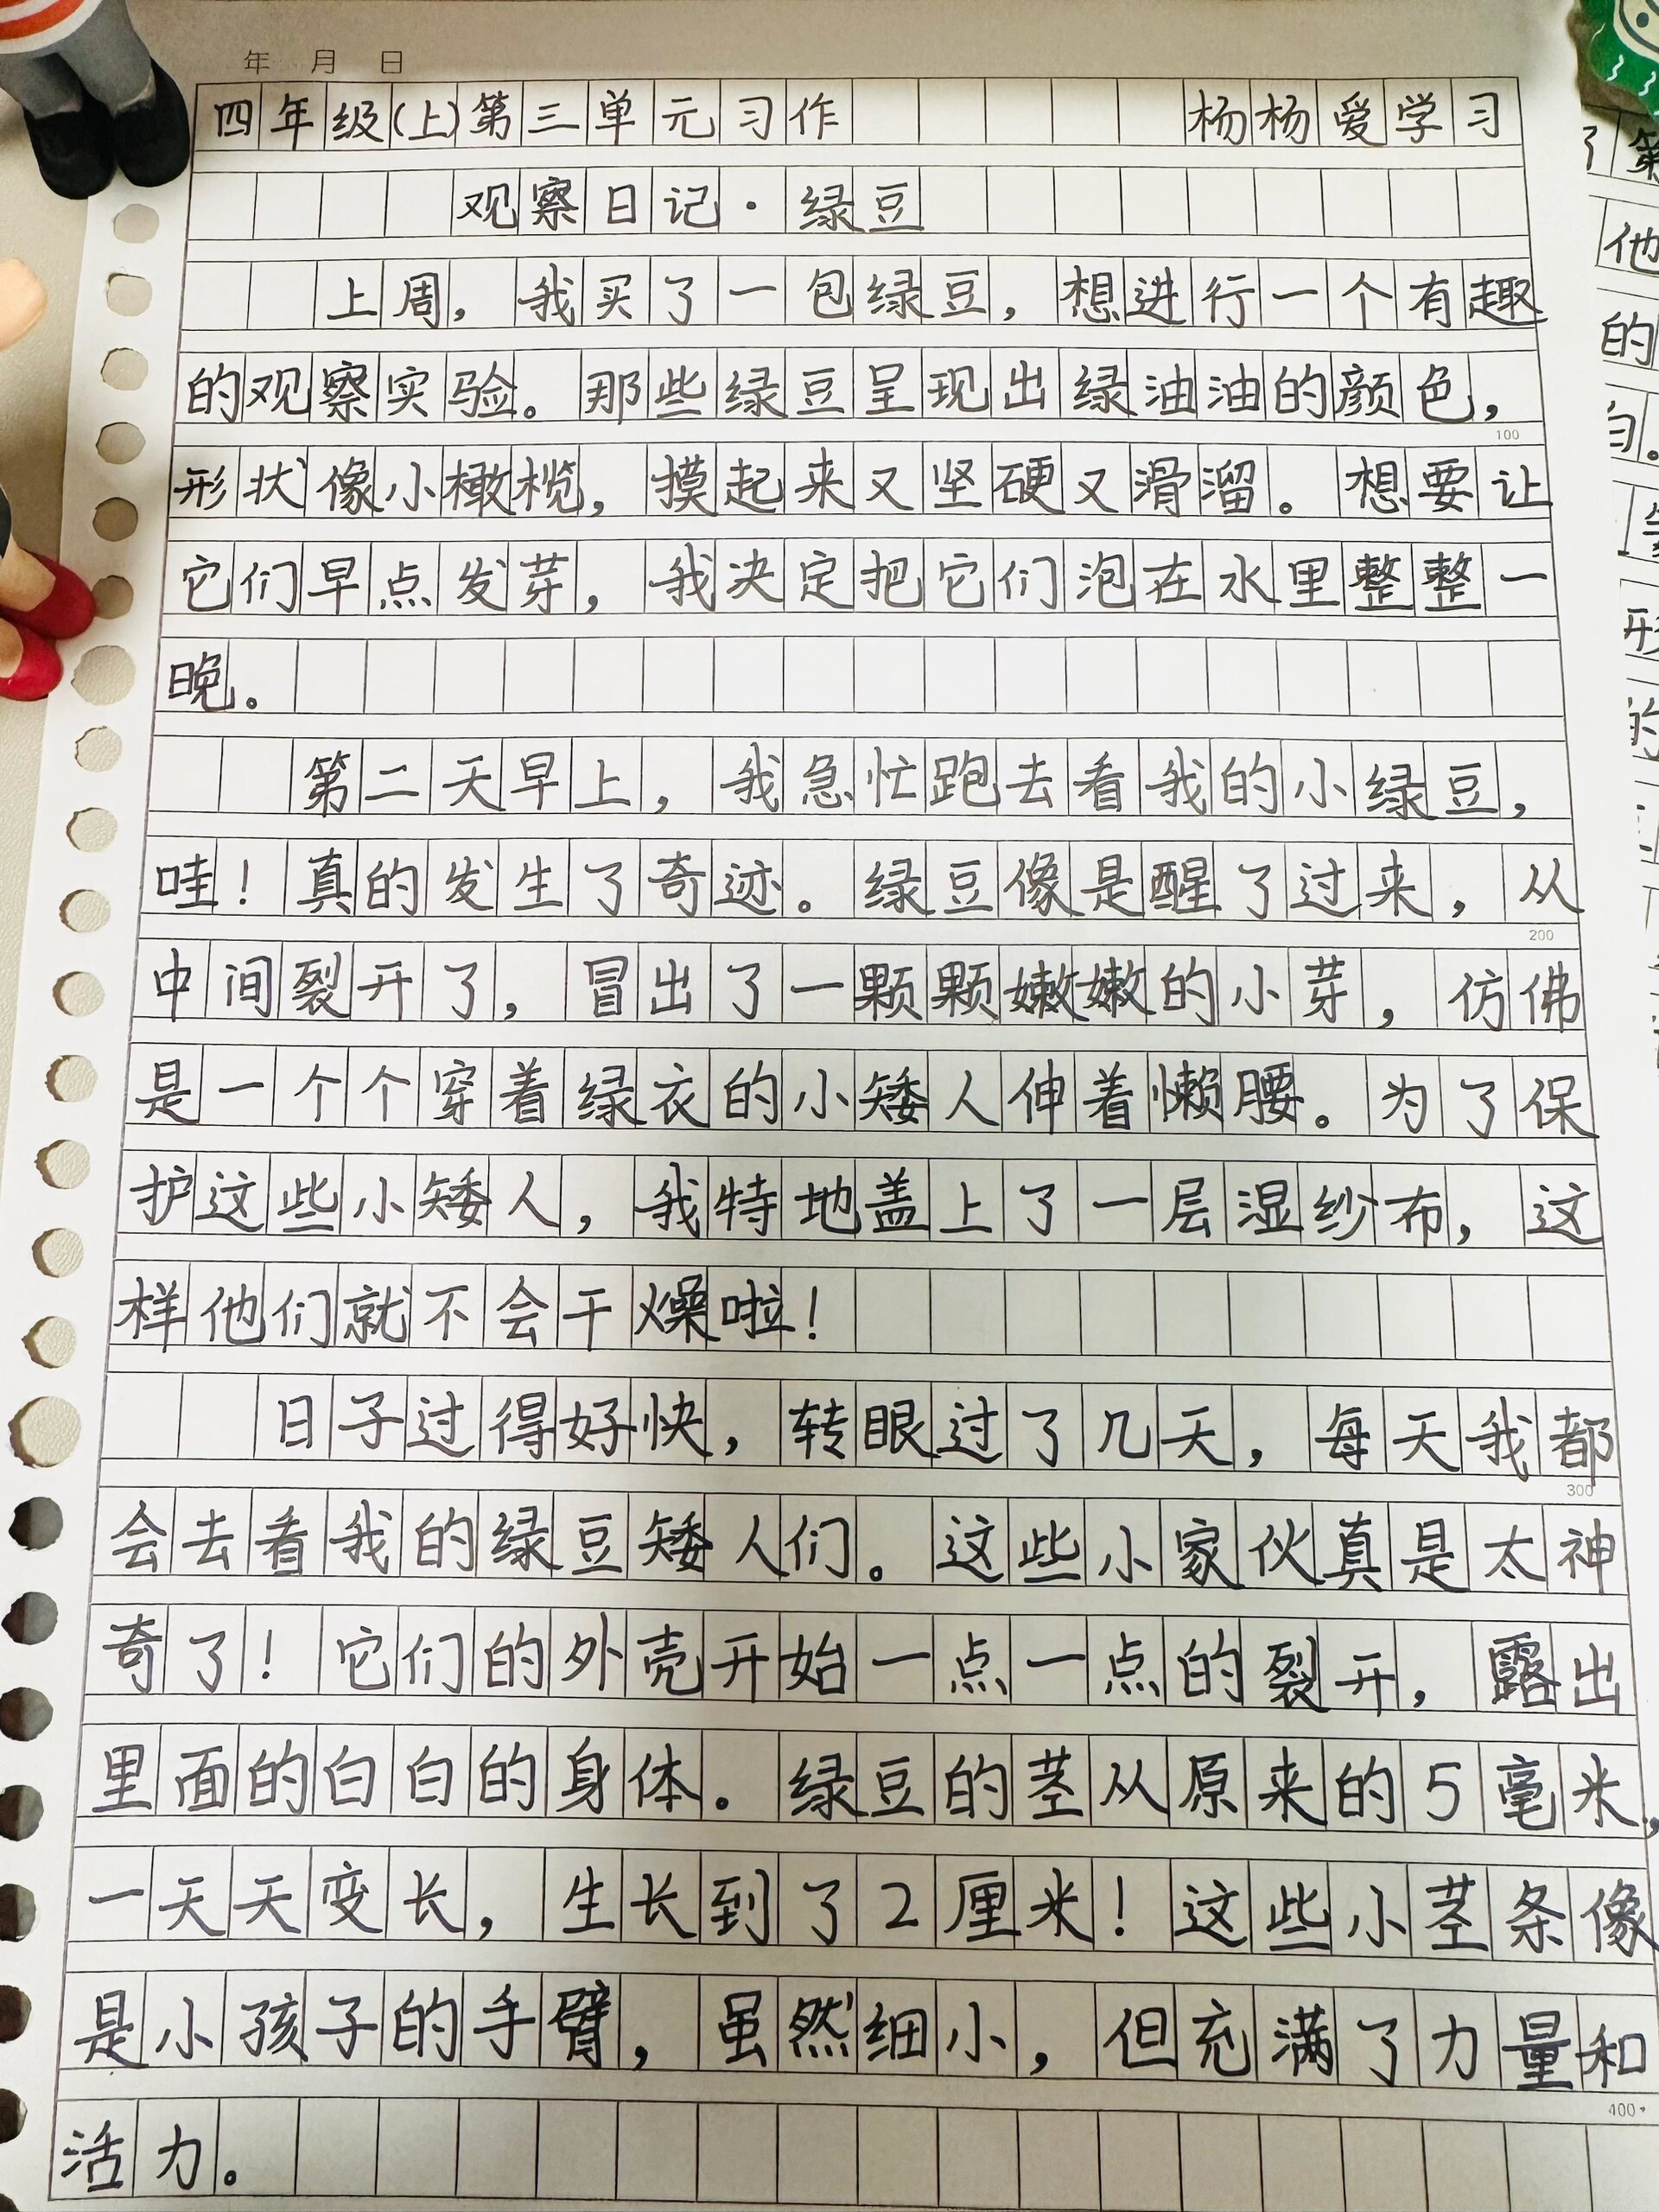 年 月 日
四年级(上)第三单元习作 杨杨爱学习
观察日记·绿豆
上周，我买了一包绿豆，想进行一个有趣
的观察实验。那些绿豆呈现出绿油油的颜色，
100
形状像小橄榄，摸起来又坚硬又滑溜。想要让
它们早点发芽，我决定把它们泡在水里整整一
晚。
第二天早上，我急忙跑去看我的小绿豆，
哇！真的发生了奇迹。绿豆像是醒了过来，从
200
中间裂开了，冒出了一颗颗嫩嫩的小芽，仿佛
是一个个穿着绿衣的小矮人伸着懒腰。为了保
护这些小矮人，我特地盖上了一层湿纱布，这
样他们就不会干燥啦！
日子过得好快，转眼过了几天，每天我都
300
会去看我的绿豆矮人们。这些小家伙真是太神
奇了！它们的外壳开始一点一点的裂开，露出
里面的白白的身体。绿豆的茎从原来的5毫米，
一天天变长，生长到了2厘米！这些小茎条像
是小孩子的手臂，虽然细小，但充满了力量和
400
活力。